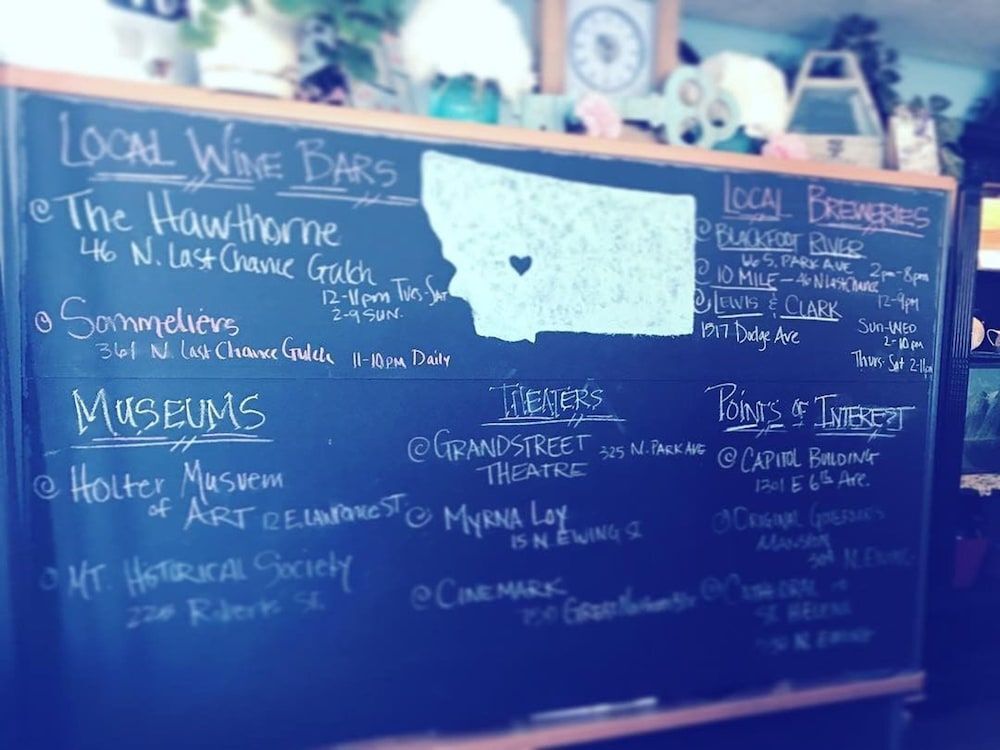 LOCAL WINE BARS
The Hawthorne
46 N. Last Chance Gulch
12-11pm Tues-Sat
2-9 SUN.
Sommeliers
361 N. Last Chance Gulch 11-10PM Daily
LOCAL BREWERIES
BLACKFOOT RIVER
66 S. PARK AVE 2pm-8pm
10 MILE - 46 N Last Chance
12-9pm
LEWIS & CLARK
1517 Dodge Ave
Sun-WED
2-10pm
Thurs-Sat 2-11pm
MUSEUMS
HOLTER MUSUEM
of ART 12 E. LAWRENCE ST
MT. HISTORICAL Society
225 Roberts St.
THEATERS
@ GRANDSTREET 325 N. PARK AVE
THEATRE
@ MYRNA LOY
15 N. EWING St
@ CINEMARK
750 Great Northern
POINTS OF INTEREST
@ CAPITOL BUILDING
1301 E 6th Ave.
@ ORIGINAL GOVERNORS
MANSION
304 N. EWING
@ CATHEDRAL of
ST. HELENA
530 N. EWING